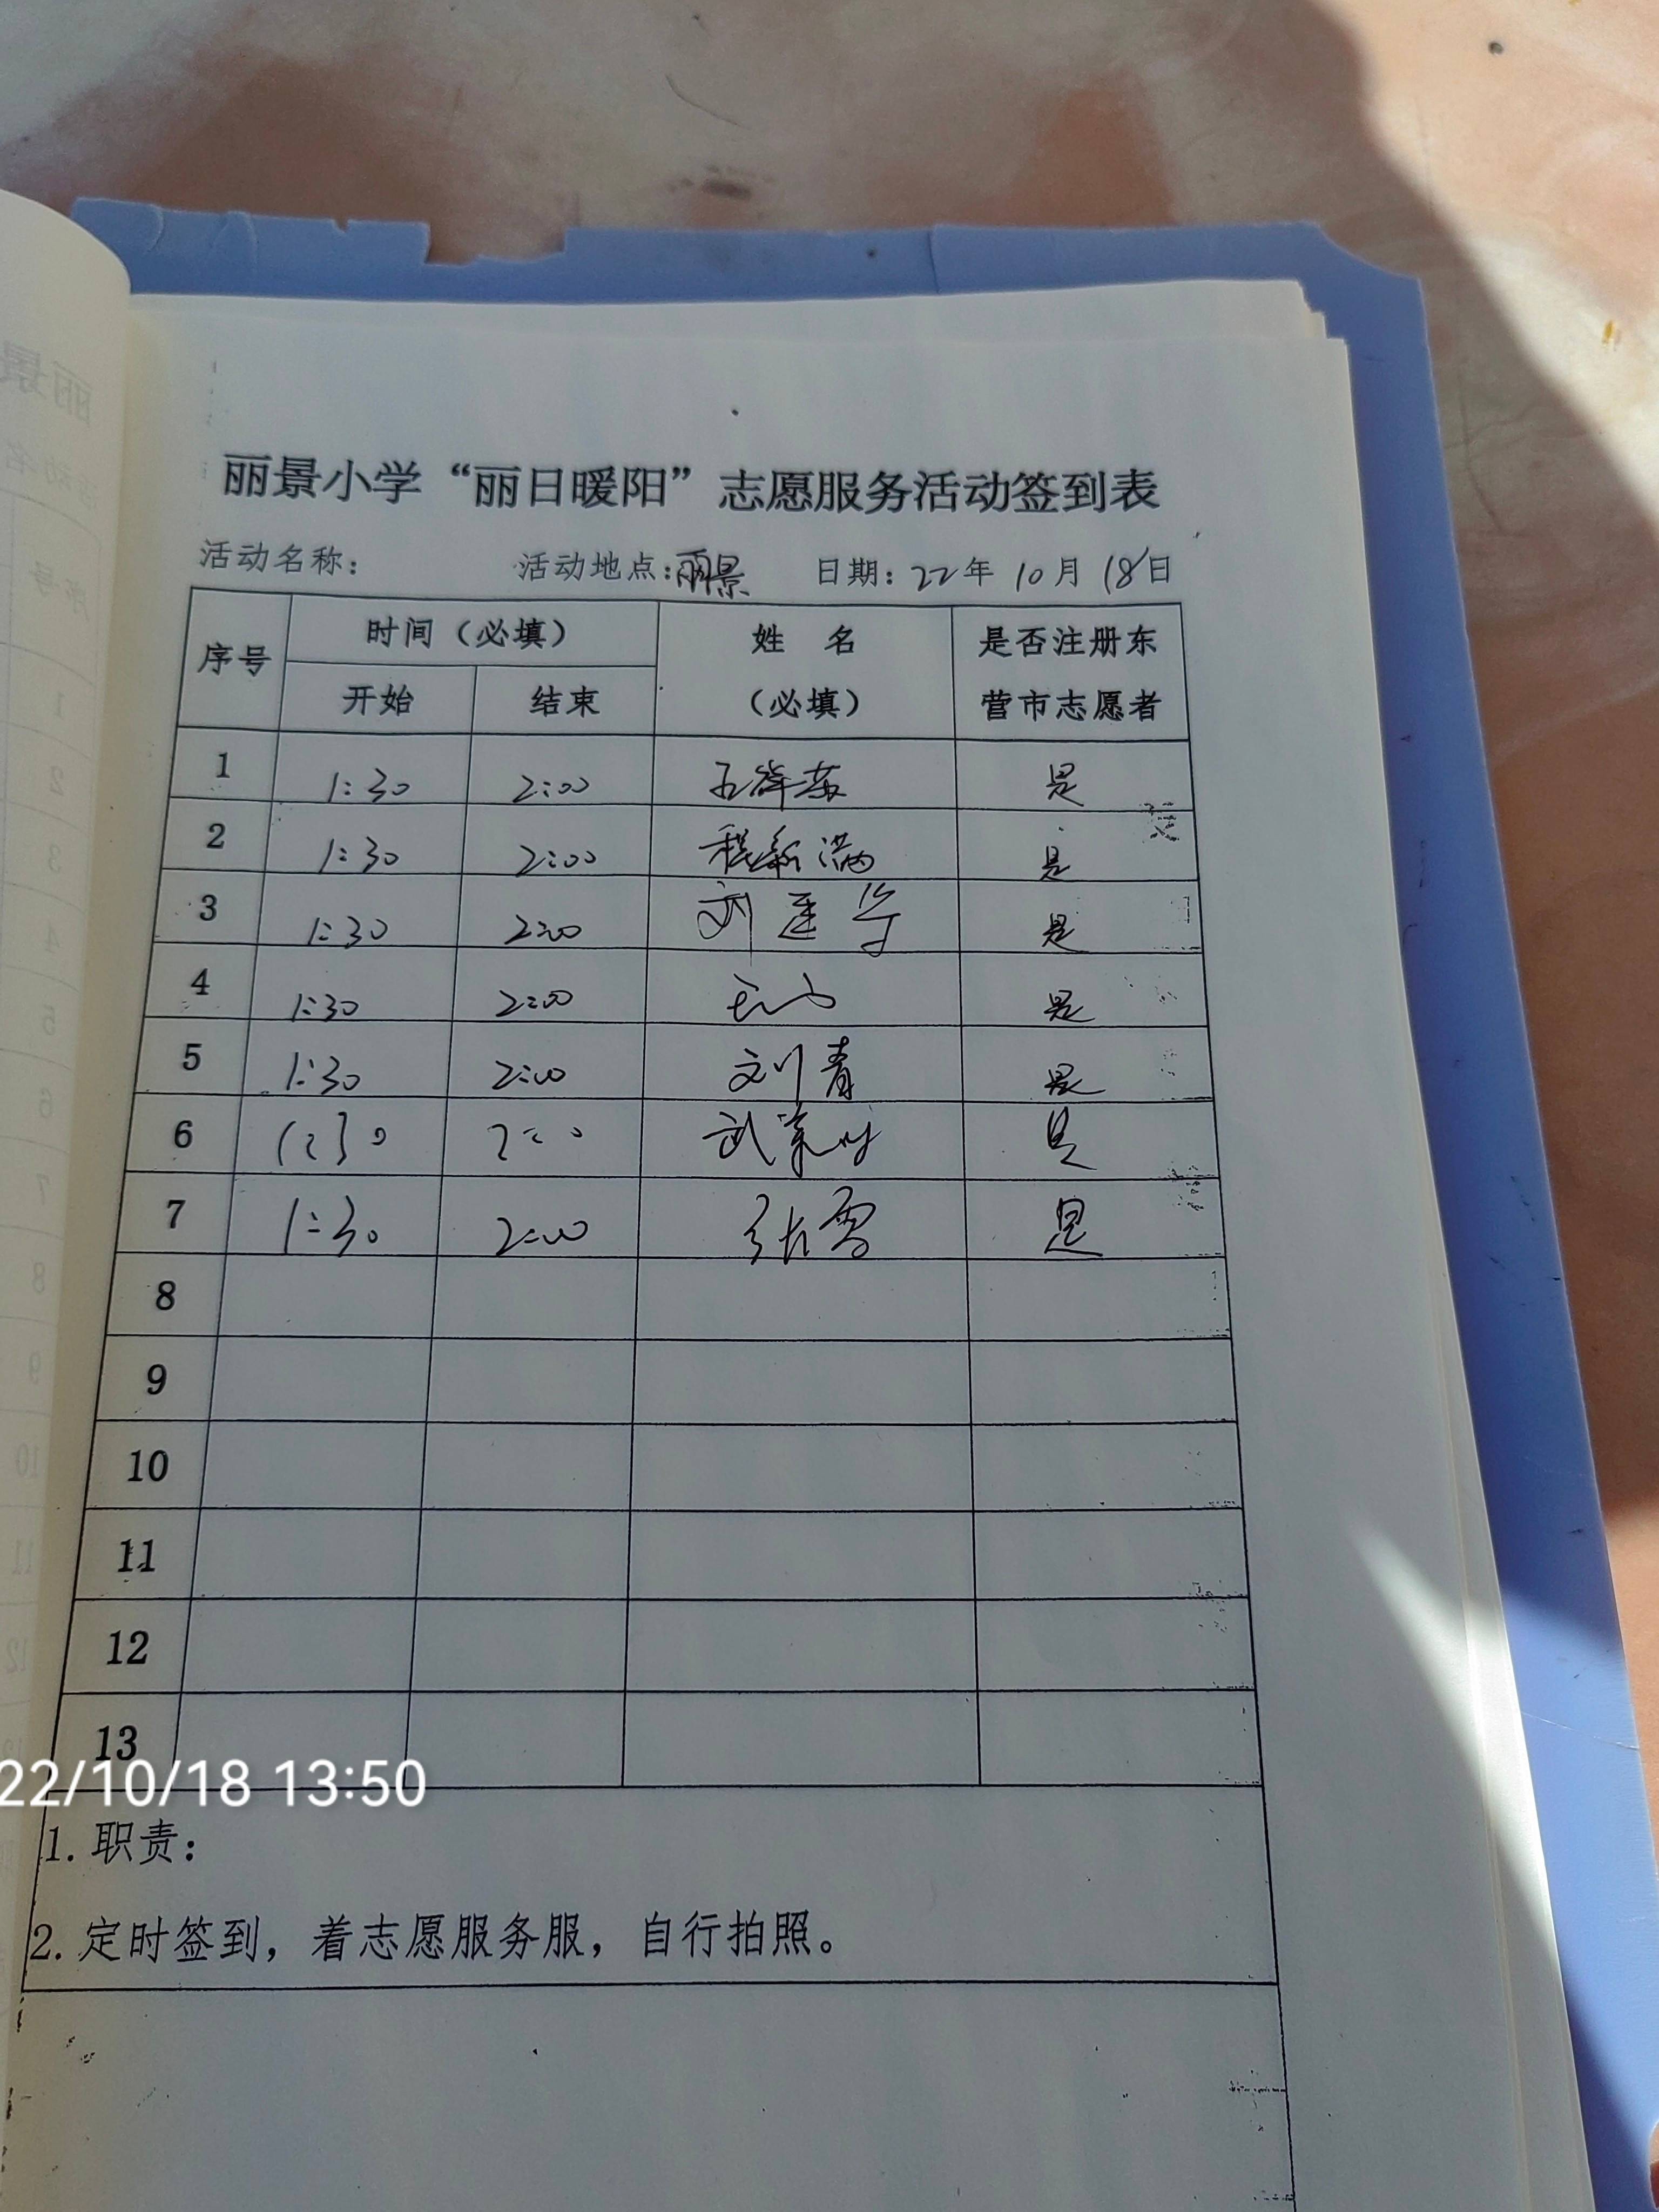 丽景小学“丽日暖阳”志愿服务活动签到表
活动名称： 活动地点：丽景 日期：22年10月18日
序号 时间（必填） 姓 名（必填） 是否注册东营市志愿者
开始 结束
1 1:30 2:00 是
2 1:30 2:00 程新满 是
3 1:30 2:00 刘 是
4 1:30 2:00 是
5 1:30 2:00 刘青 是
6 1:30 2:00 武 是
7 1:30 2:00 张雪 是
8
9
10
11
12
13
22/10/18 13:50
1. 职责：
2. 定时签到，着志愿服务服，自行拍照。